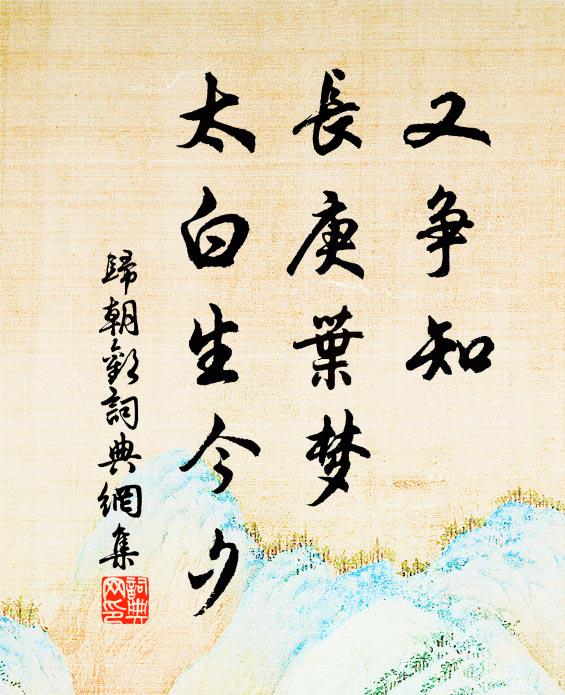 又争知
長庚葉梦
太白生今夕
歸朝歡詞典網集
詞典